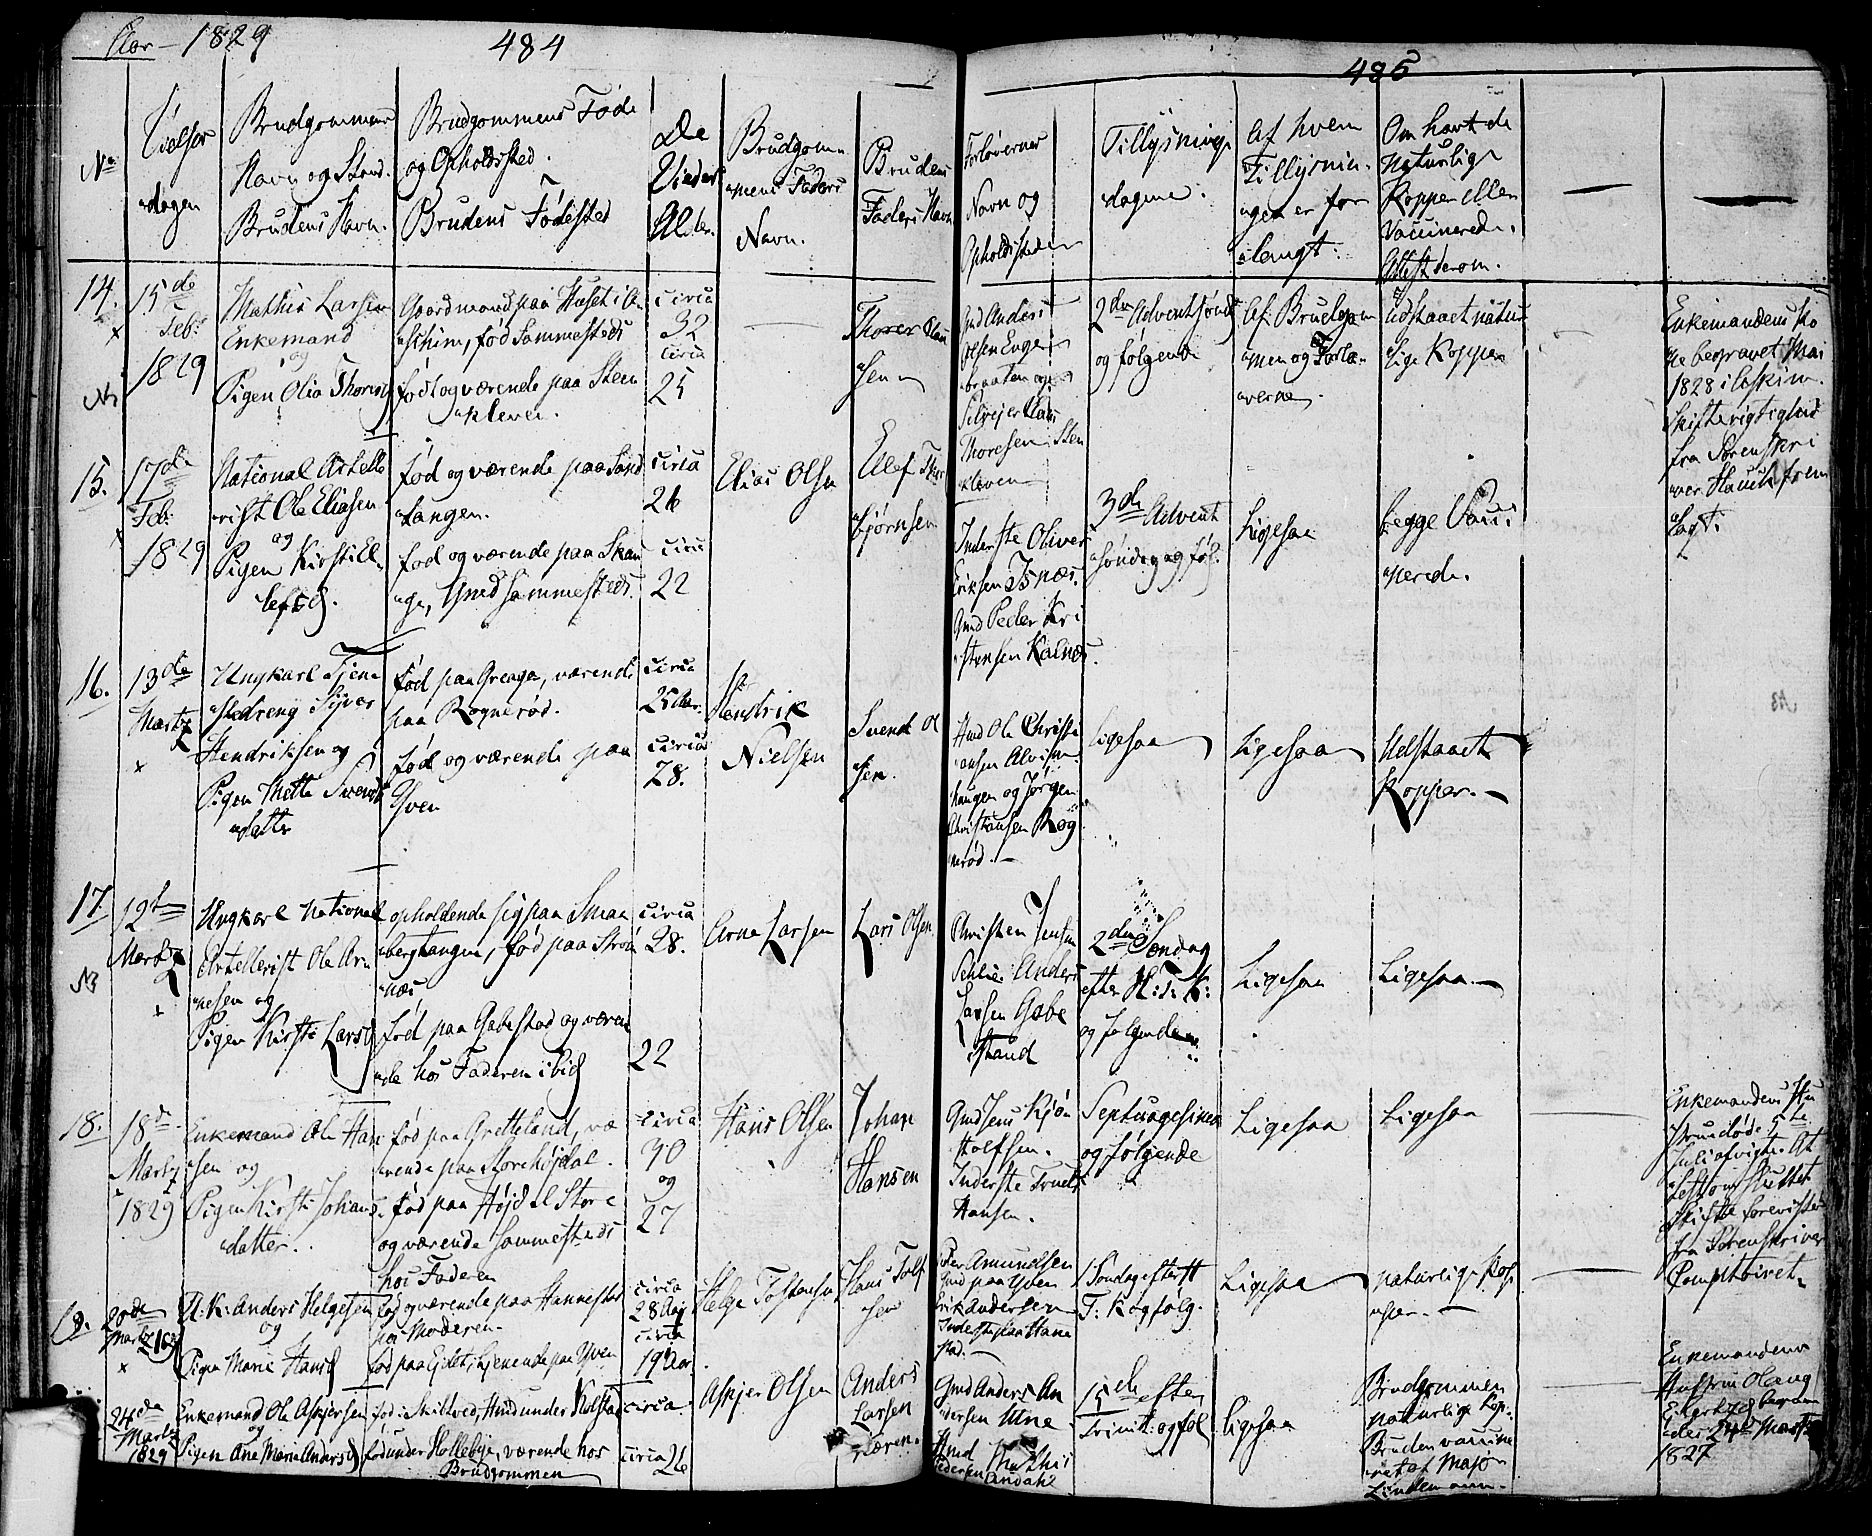 Aar - 1829
484
485
No
Vielses
dagen
Brudgommens
Navn og Stand.
Brudens Navn.
Brudgommens Føde
og Opholdssted.
Brudens Fødested
De
Viedes
Alder.
Brudgom
mens Faders
Navn.
Brudens
Faders Navn
Forlovernes
Navn og
Opholdssteder
Tillysnings
dagene.
Af hvem
Tillysnin
gen er for
langt.
Om havt de
Naturlige
Kopper eller
Vaccinerede.
Attest derom.
14.
15de
Feb:
1829
Mathis Larsen
Enkemand
og
Pigen Olia Thoresd
Gaardmand paa Huset i A
skim, fød sammesteds
født og værende paa Steen
kleven.
circa
32
circa
25
Thorer
sen
Gmd Anders
Olsen Enge
braaten og
Thoresen Sten
kleven
2den Adventsønd
og følgende
Af Brudgom
men og Forlo
verne
Udstaaet natur
lige Kopper
Enkemandens Ko
ne begravet Mai
1828 i Askim.
Skifterigtighed
fra Sorenskri
ver Hauch frem
lagt.
15.
17de
Feb:
1829
National Artille
rist Ole Eliasen
og
Pigen Kirsti El
lefsd.
Fød og værende paa Sand
tangen.
fød og værende paa Skau
ge, Gmd sammesteds.
circa
26
circa
22
Elias Olsen
Ellef Thor
bjørnsen
Inderste Oliver
Eriksen Isnæs.
Gmd Peder Kri
stensen Kalnæs.
3de Advent
søndag og føl.
Ligesaa
begge Vacci
nerede.
16.
13de
Martz
Ungkarl Tjene
stedreng Siver
Hendriksen og
Pigen Mette Svends
datter
fød paa Grenga, værende
paa Rognerød.
fød og værende paa
Yven
circa
25 Aar.
circa
28.
Hendrik
Nielsen
Svend Ol
sen.
Hmd Ole Christi
ansen Alvim
haugen og Jørgen
Christiansen Rog
nerød.
Ligesaa
Ligesaa
Udstaaet
Kopper.
17.
19de
Martz
Ungkarl National
Artillerist Ole Ar
nesen og
Pigen Kirsti Larsd
opholdende sig paa Smaa
bergtangen, fød paa Strøm
næs
fød paa Gabestad og væren
de hos Faderen ibid
circa
28.
22
Arne Larsen
Lars Olsen
Christen Jensen
Anders
Larsen Gabe
stad
2den Søndag
efter H: 3: K:
og følgende
Ligesaa
Ligesaa.
18.
18de
Martz
1829
Enkemand Ole Han
sen og
Pigen Kirsti Johans
datter.
fød paa Gretteland, væ
rende paa Storehøjdal.
fød paa Højdal Store
og værende sammesteds
hos Faderen
circa
30
og
27
Hans Olsen
Johan
Hansen
Gmd Jens Kjøn
Inderste Truels
Hansen.
Septuagesima
og følgende
Ligesaa
Ligesaa
Enkemandens Hu
strue døde 5te
Juli afvigte. At
test om sluttet
Skifte forevistes
fra Sorenskriver
Comptoiret.
19.
20de
Martz 1829
U.K. Anders Helgesen
og
Pigen Marie Hansd
fød og værende paa Hannestad
hos Moderen.
fød paa Eidet, tjenende paa Yven
circa
28 Aar
circa
19 Aar.
Helge Tostensen
Hans Tolf
sen
Peder Amundsen
Gmd paa Yven
Erik Andersen
Inderste paa Hanne
stad.
1 Søndag efter H
T: K og følg.
Ligesaa
naturlige Kop
per.
24de
Martz
1829
Enkemand Ole Askjersen
og
Pigen Ane Marie Andersd
fød i Skiltved, Hmd under Kolstad
fød under Hollebye, værende hos
Brudgommen
circa
circa
26
Askjer Olsen
Anders
Larsen
Gmd Anders An
dersen Une
Hmd Mathis
Pedersen Andahl
15de efter
Trinit. og føl
Ligesaa
Brudgommen
naturlige Kop.
Bruden vaccine
ret af Major
Lindemann.
Enkemandens
Hustru
den 24de Martz
1827